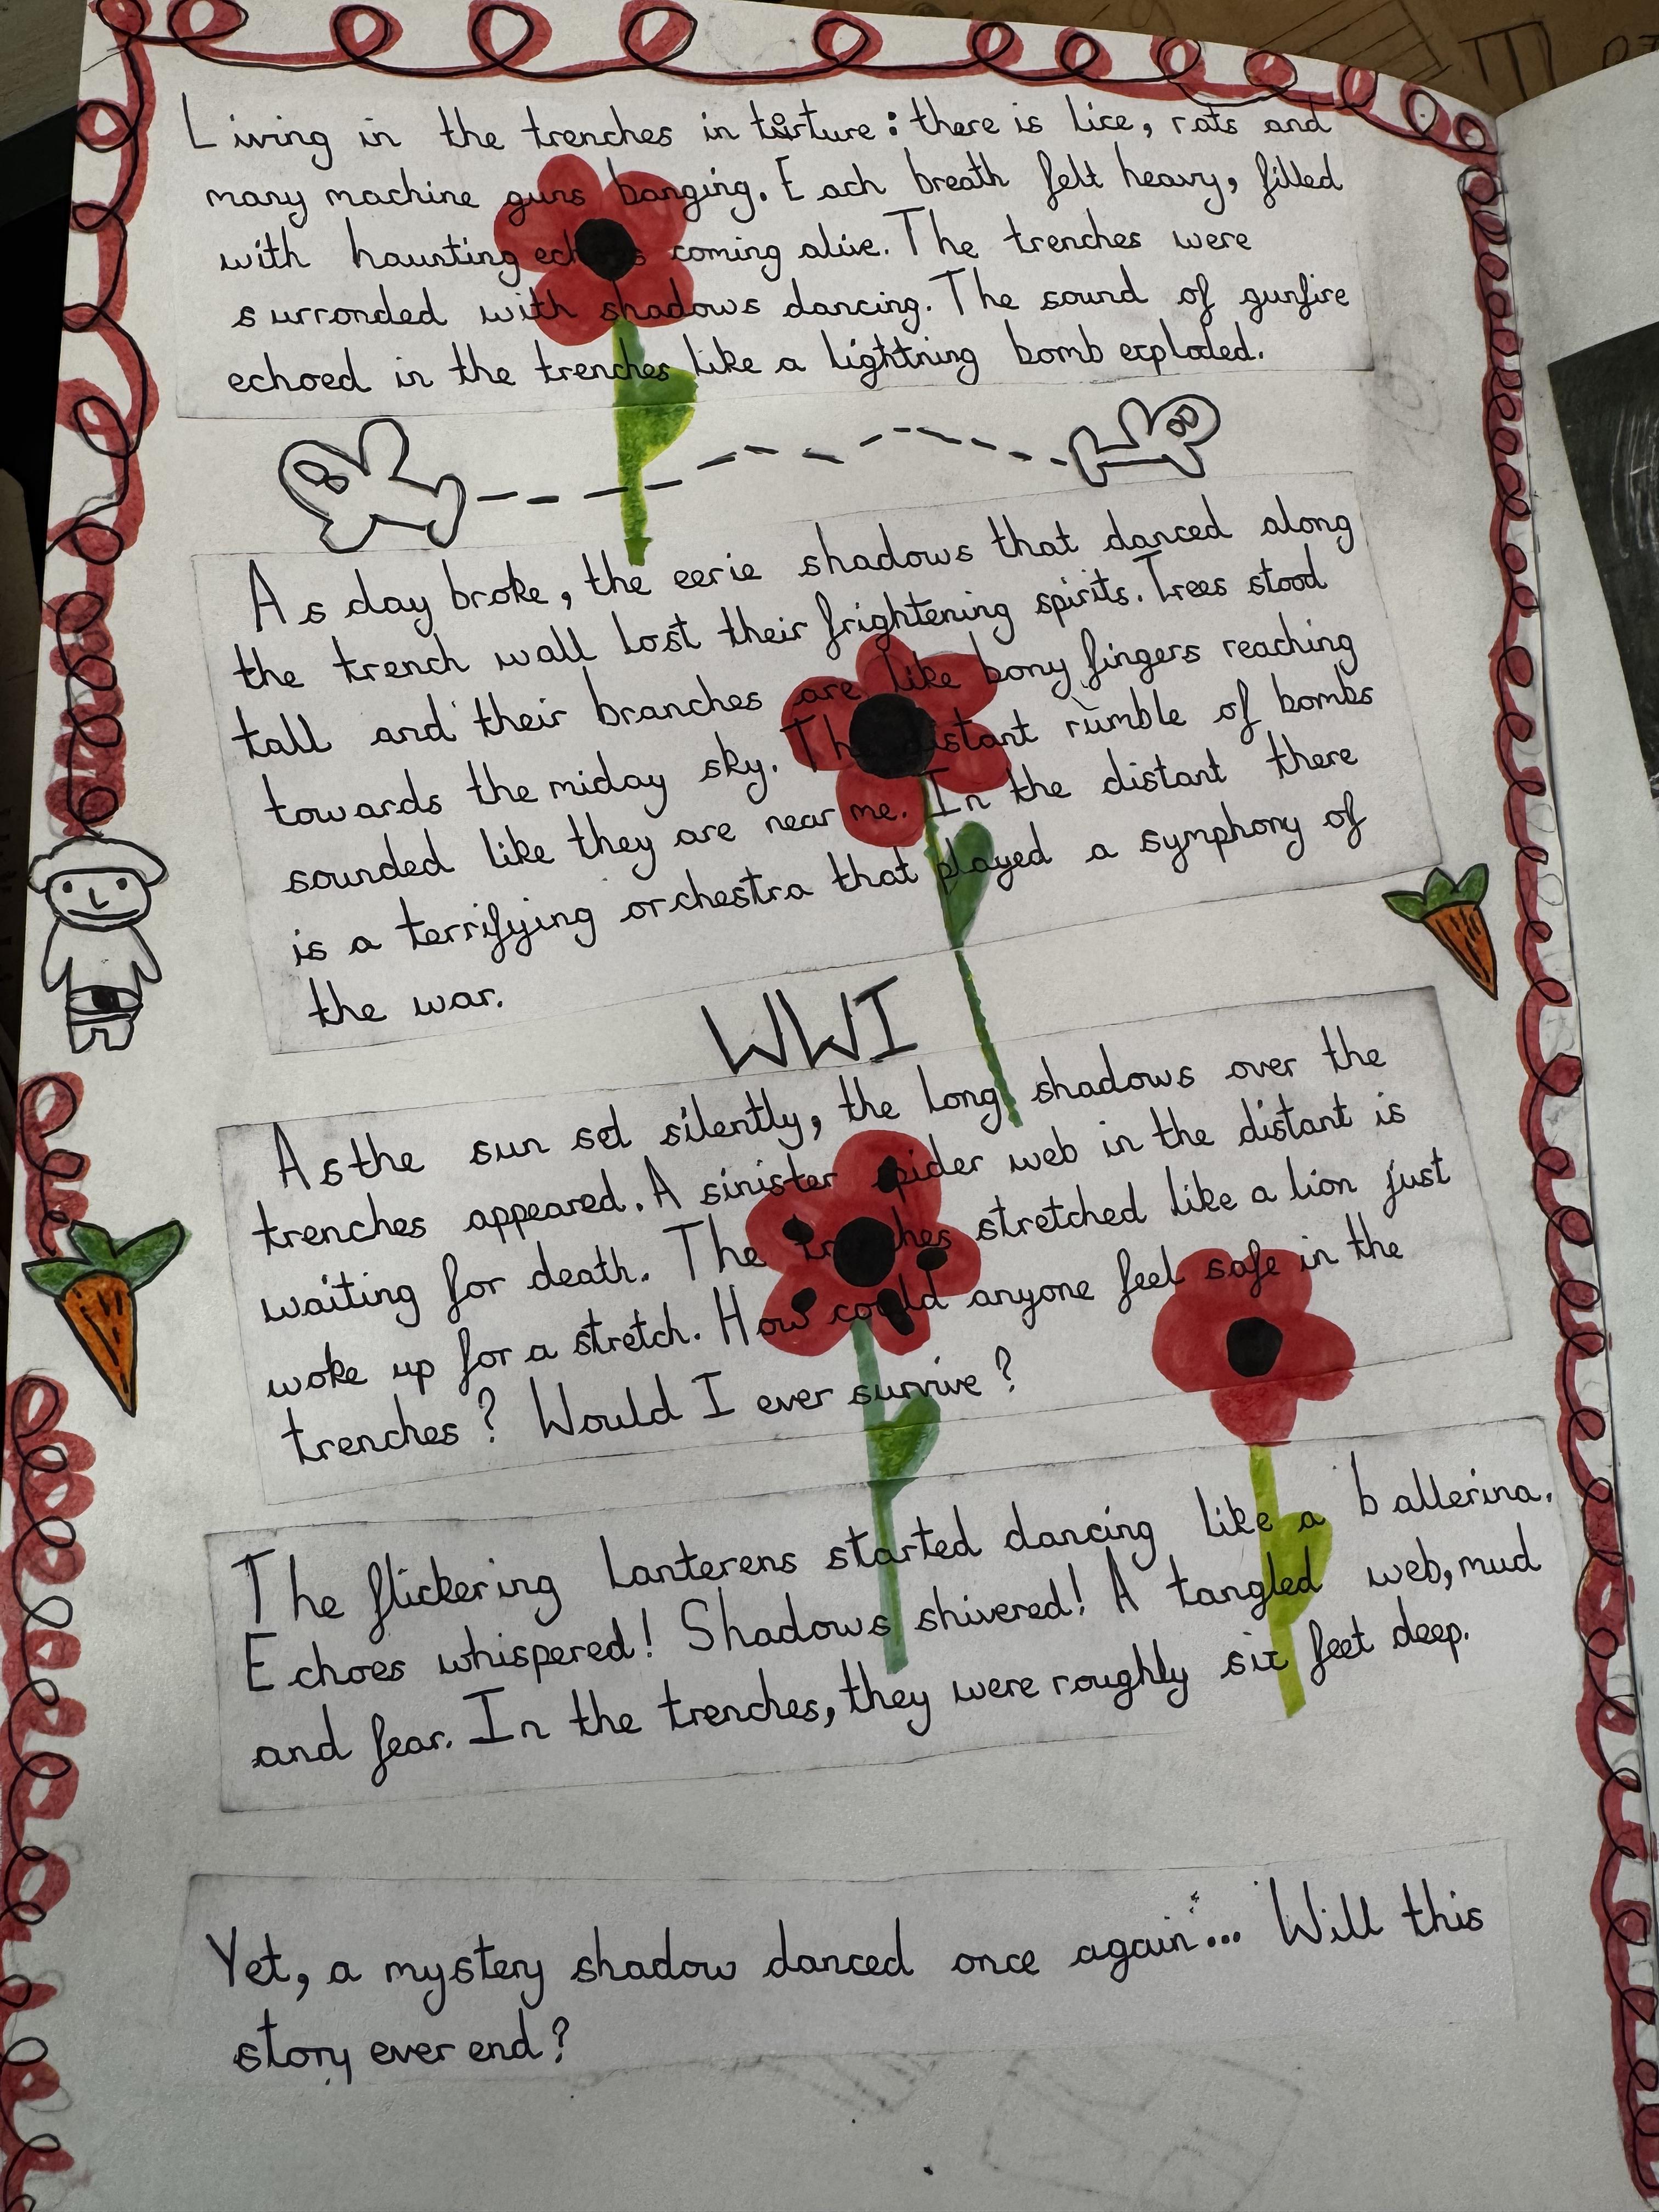 Living in the trenches in torture: there is lice, rats and
many machine guns banging. Each breath felt heavy, filled
with haunting echoes coming alive. The trenches were
surronded with shadows dancing. The sound of gunfire
echoed in the trenches like a lightning bomb exploded.
As day broke, the eerie shadows that danced along
the trench wall lost their frightening spirits. Trees stood
tall and their branches are like bony fingers reaching
towards the miday sky. The distant rumble of bombs
sounded like they are near me. In the distant there
is a terrifying orchestra that played a symphony of
the war.
WWI
As the sun set silently, the long shadows over the
trenches appeared. A sinister spider web in the distant is
waiting for death. The trenches stretched like a lion just
woke up for a stretch. How could anyone feel safe in the
trenches? Would I ever survive?
The flickering lanterens started dancing like a ballerina.
Echoes whispered! Shadows shivered! A tangled web, mud
and fear. In the trenches, they were roughly six feet deep.
Yet, a mystery shadow danced once again... Will this
story ever end?